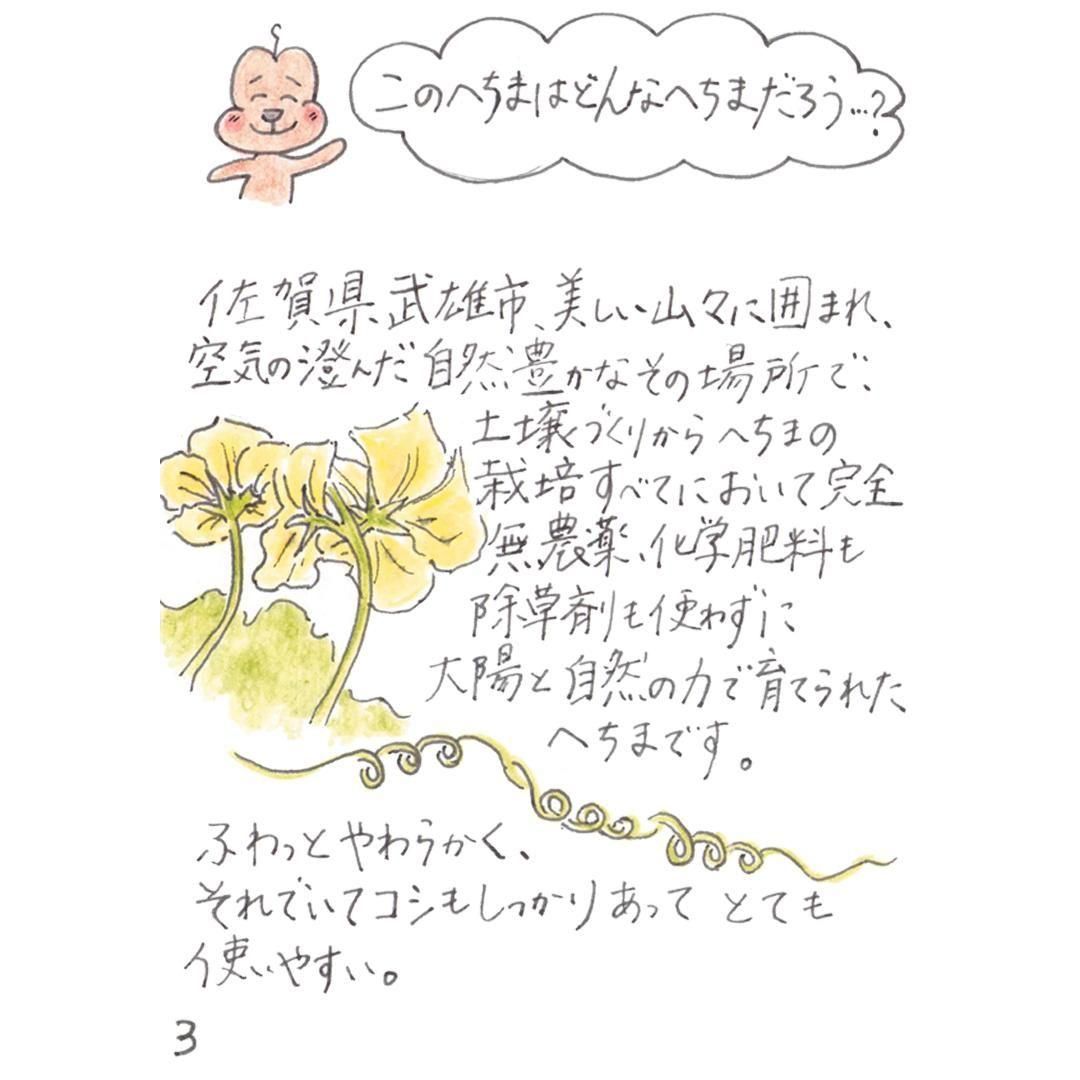 このへちまはどんなへちまだろう…?
佐賀県武雄市、美しい山々に囲まれ、
空気の澄んだ自然豊かなその場所で、
土壌づくりからへちまの
栽培すべてにおいて完全
無農薬、化学肥料も
除草剤も使わずに
太陽と自然の力で育てられた
へちまです。
ふわっとやわらかく、
それでいてコシもしっかりあってとても
使いやすい。
3